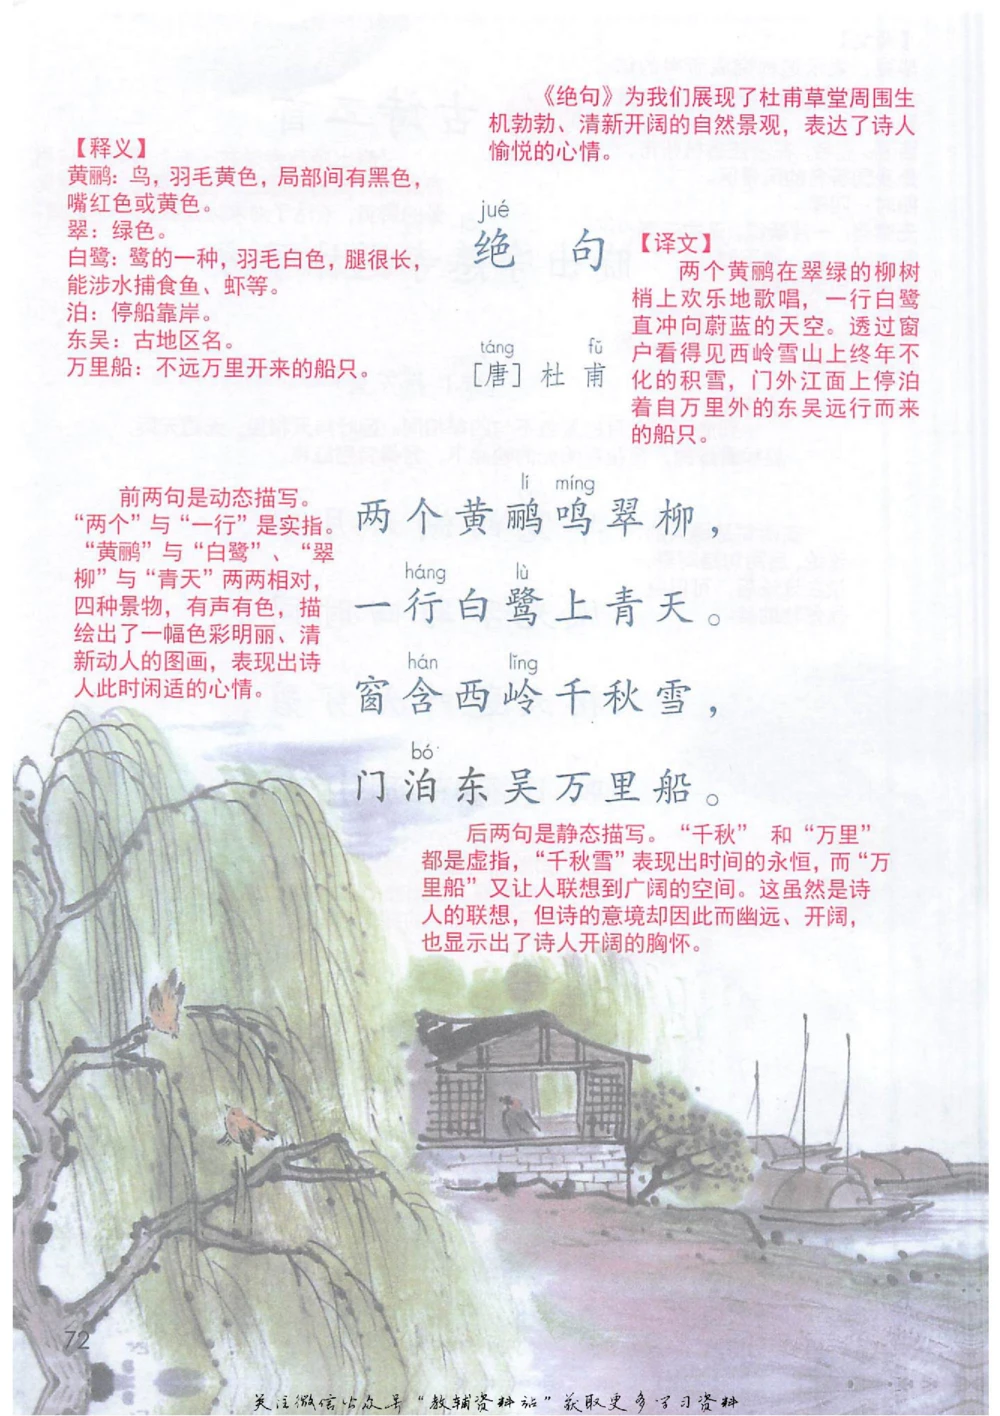 《绝句》为我们展现了杜甫草堂周围生
机勃勃、清新开阔的自然景观，表达了诗人
愉悦的心情。
【释义】
黄鹂：鸟，羽毛黄色，局部间有黑色，
嘴红色或黄色。
翠：绿色。
白鹭：鹭的一种，羽毛白色，腿很长，
能涉水捕食鱼、虾等。
泊：停船靠岸。
东吴：古地区名。
万里船：不远万里开来的船只。
jué
绝 句
táng fǔ
［唐］杜 甫
【译文】
两个黄鹂在翠绿的柳树
梢上欢乐地歌唱，一行白鹭
直冲向蔚蓝的天空。透过窗
户看得见西岭雪山上终年不
化的积雪，门外江面上停泊
着自万里外的东吴远行而来
的船只。
前两句是动态描写。
“两个”与“一行”是实指。
“黄鹂”与“白鹭”、“翠
柳”与“青天”两两相对，
四种景物，有声有色，描
绘出了一幅色彩明丽、清
新动人的图画，表现出诗
人此时闲适的心情。
lí míng
两个黄鹂鸣翠柳，
háng lù
一行白鹭上青天。
hán lǐng
窗含西岭千秋雪，
bó
门泊东吴万里船。
后两句是静态描写。“千秋” 和“万里”
都是虚指，“千秋雪”表现出时间的永恒，而“万
里船”又让人联想到广阔的空间。这虽然是诗
人的联想，但诗的意境却因此而幽远、开阔，
也显示出了诗人开阔的胸怀。
72
关注微信公众号“教辅资料站”获取更多学习资料